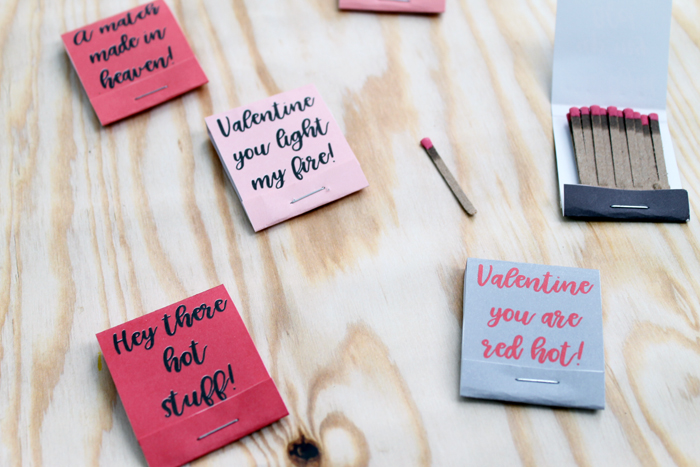 A match
made in
heaven!
Valentine
you light
my fire!
Hey there
hot
stuff!
Valentine
you are
red hot!